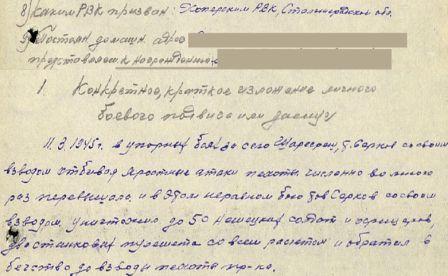 8) Каким РВК призван: Хоперским РВК, Сталинградская обл.
9) Постоян. домашн. адрес
представляем. к награждению
1. Конкретное, краткое изложение личного
боевого подвига или заслуг
11.3.1945г. в упорных боях за село Шаресраи, т. Сарков со своим
взводом отбивая яростные атаки пехоты, численно во много
раз превышало, и в этом неравном бою тов Сарков со своим
взводом, уничтожено до 50 немецких солдат и офицеров
два станковых пулемета со всем расчетом и обратил в
бегство до взвода пехоты пр-ка.